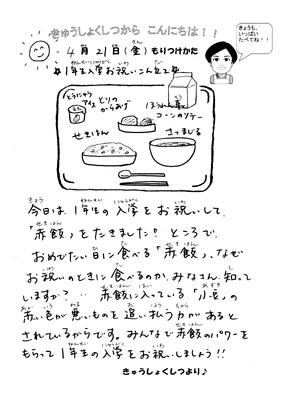 きゅうしょくしつから こんにちは！！
きょうも、
いっぱい
たべてね！！
4月21日(金)もりつけかた
1年生入学お祝いこんだて
とうにゅう
アイス
とりの
からあげ
ほうれん草
コーンのソテー
せきはん
さつまじる
今日は、1年生の入学をお祝いして、
「赤飯」をたきました！ところで、
おめでたい日に食べる「赤飯」、なぜ
お祝いのときに食べるのか、みなさん、知って
いますか？赤飯に入っている「小豆」の
赤い色が悪いものを追い払う力があると
されているからです。みんなで赤飯のパワーを
もらって1年生の入学をお祝いしましょう！！
きゅうしょくしつより♪